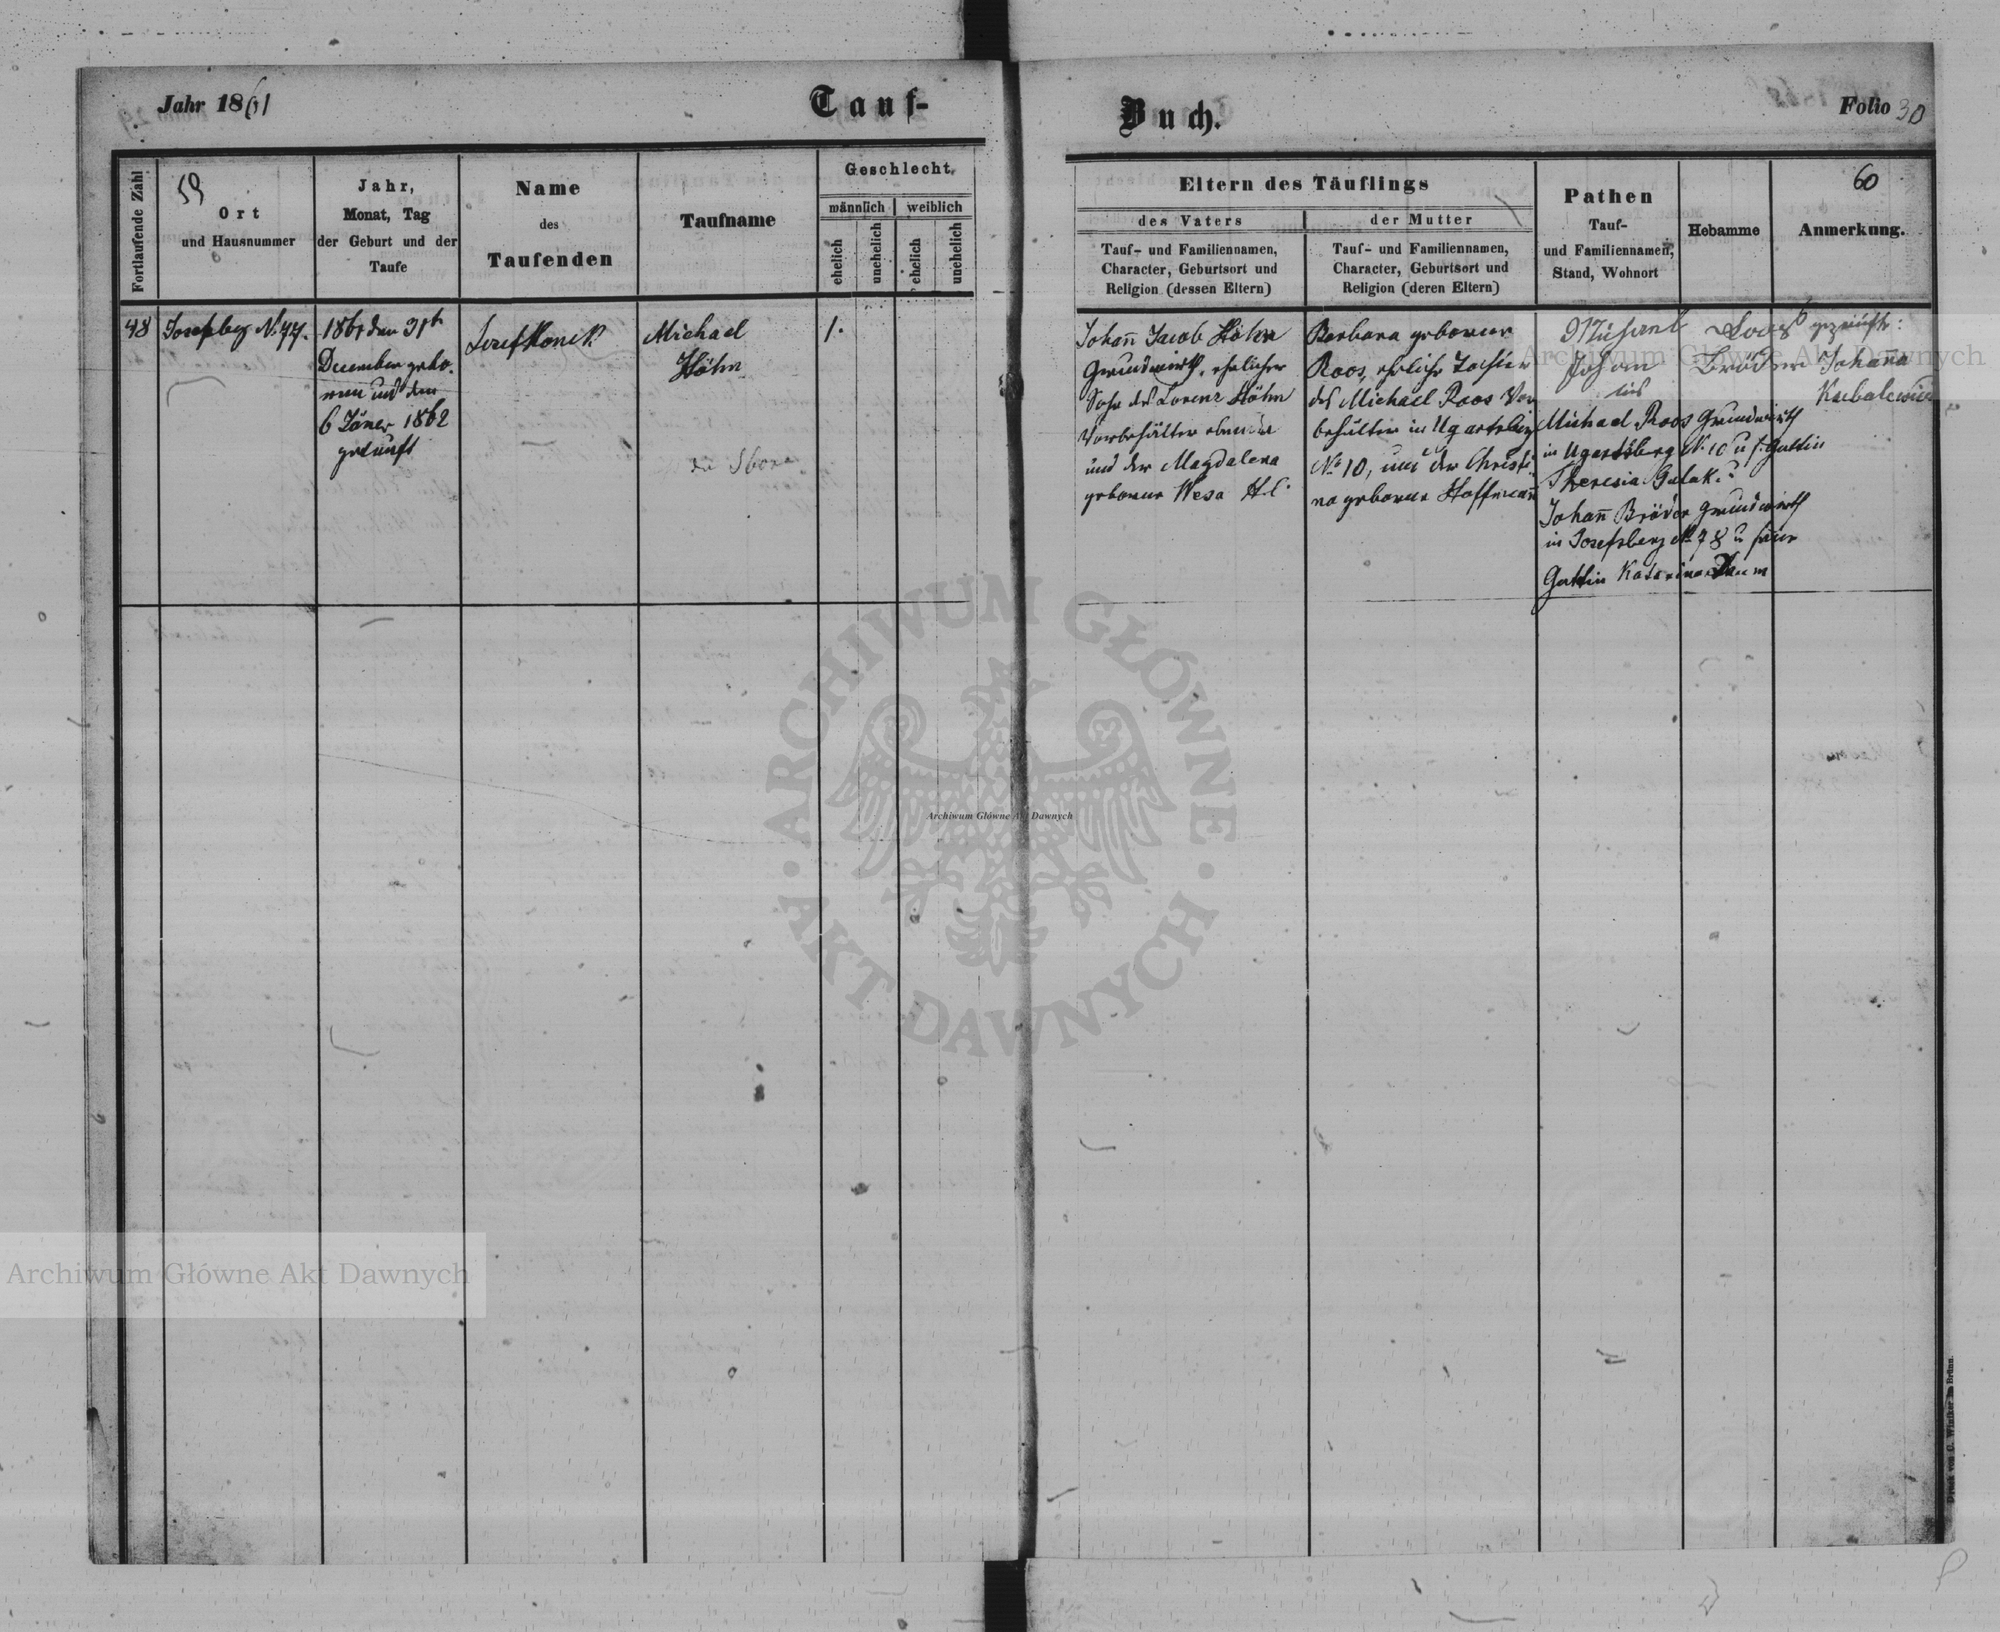 Jahr 1861
Tauf-
Buch.
Folio 30
59
60
Fortlaufende Zahl
Ort
und Hausnummer
Jahr,
Monat, Tag
der Geburt und der
Taufe
Name
des
Taufenden
Taufname
Geschlecht,
männlich
weiblich
ehelich
unehelich
ehelich
unehelich
Eltern des Täuflings
des Vaters
der Mutter
Tauf- und Familiennamen,
Character, Geburtsort und
Religion (dessen Eltern)
Tauf- und Familiennamen,
Character, Geburtsort und
Religion (deren Eltern)
Pathen
Tauf-
und Familiennamen,
Stand, Wohnort
Hebamme
Anmerkung.
48
Josefsberg N. 77.
1861 den 31t
December gebo.
ren und den
6 Jäner 1862
getauft
Josef Konek
Michael
Höhn
1.
Johann Jacob Höhn
Grundwirth, ehelicher
Sohn des Lorenz Höhn
Vorbehälter
und der Magdalena
geborene Wesa H.C.
Barbara geborene
Roos, eheliche Tochter
des Michael Roos Vor
behälter in Ugartsberg
No 10, und der Christi
na geborene Hoffmann
Michael Roos
Johann Bröder
und
Michael Roos Grundwirth
in Ugartsberg N. 10 u. s. Gattin
Theresia
Johann Bröder Grundwirth
in Josefsberg N. 78 u seine
Gattin Katarina
geprüfte:
Johana
Archiwum Główne Akt Dawnych
ARCHIWUM GŁÓWNE
AKT DAWNYCH
Archiwum Główne Akt Dawnych
Archiwum Główne Akt Dawnych
Druck von C. Winiker in Brünn.